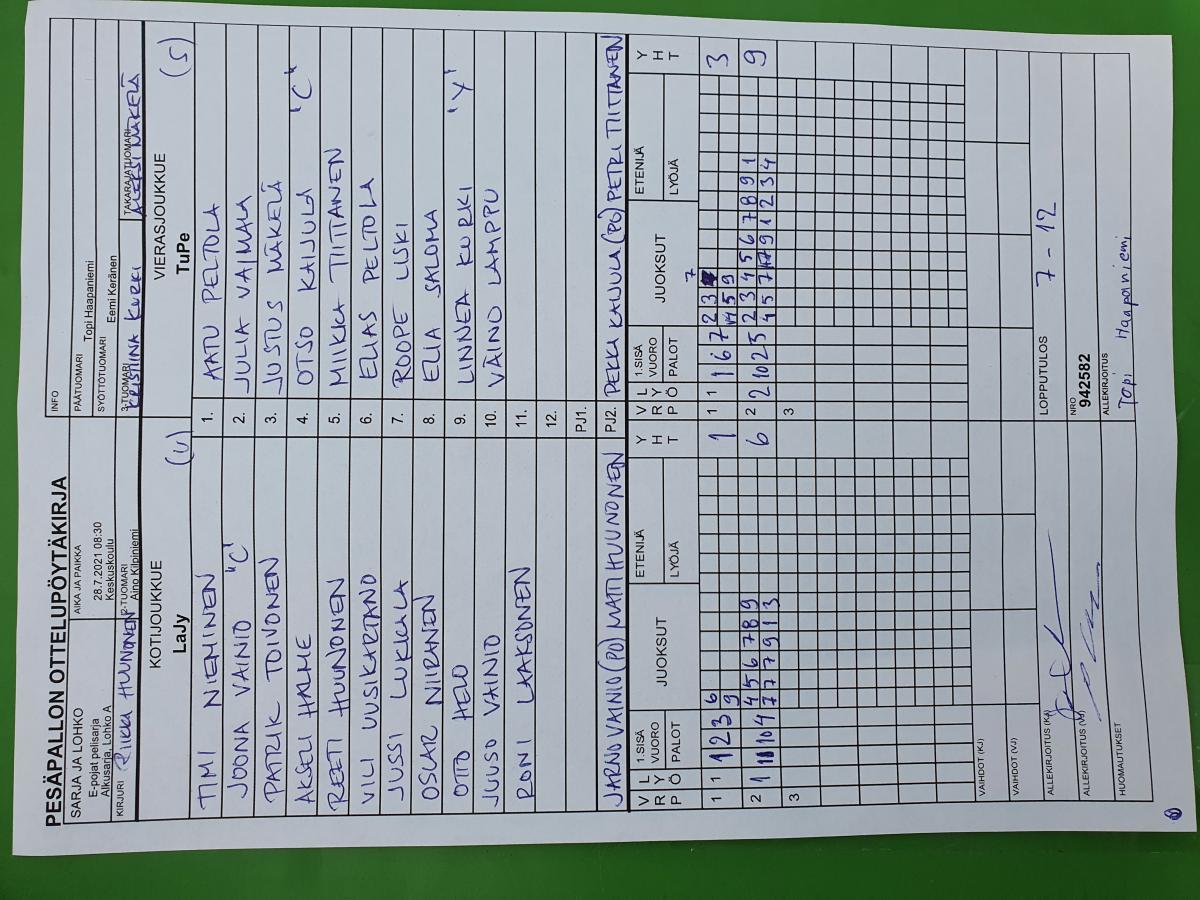 PESÄPALLON OTTELUPÖYTÄKIRJA
SARJA JA LOHKO
E-pojat pelisarja
Alkusarja, Lohko A
AIKA JA PAIKKA
28.7.2021 08:30
Keskuskoulu
INFO
PÄÄTUOMARI
Topi Haapaniemi
SYÖTTÖTUOMARI
Eemi Keränen
KIRJURI RIIKKA HUUNONEN
2-TUOMARI
Aino Kilpiniemi
3-TUOMARI
KRISTIINA KURKI
TAKARAJATUOMARI
ALEKSI MÄKELÄ
KOTIJOUKKUE
LaJy (U)
VIERASJOUKKUE
TuPe (S)
TIMI NIEMINEN 1. AATU PELTOLA
JOONA VAINIO "C" 2. JULIA VAJMALA
PATRIK TOIVONEN 3. JUSTUS MÄKELÄ
AKSELI HALME 4. OTSO KAIJULA "C"
REETI HUUNONEN 5. MIIKKA TIITTANEN
VILI UUSIKARTANO 6. ELIAS PELTOLA
JUSSI LUKKALA 7. ROOPE LISKI
OSCAR NIIRANEN 8. ELIA SALOMA
OTTO HELO 9. LINNEA KURKI "Y"
JUUSO VAINIO 10. VÄINÖ LAMPPU
RONI LAAKSONEN 11.
12.
PJ1.
JARNO VAINIO (PO) MATTI HUUNONEN PJ2. PEKKA KAIJULA (PO) PETRI TIITTANEN
V R P L Y Ö 1.SISÄ VUORO PALOT JUOKSUT ETENIJÄ LYÖJÄ Y H T V R P L Y Ö 1.SISÄ VUORO PALOT JUOKSUT ETENIJÄ LYÖJÄ Y H T
1 1 1 2 3 6 1 1 1 1 6 7 2 3 7 3
9 4 5 9
2 1 11 10 4 4 5 6 7 8 9 6 2 2 10 2 5 2 3 4 5 6 7 8 9 1 9
7 7 7 9 1 3 4 5 7 9 1 2 3 4
3 3
VAIHDOT (KJ)
VAIHDOT (VJ)
ALLEKIRJOITUS (KJ)
LOPPUTULOS 7 - 12
ALLEKIRJOITUS (VJ)
NRO
942582
HUOMAUTUKSET
ALLEKIRJOITUS
Topi Haapaniemi